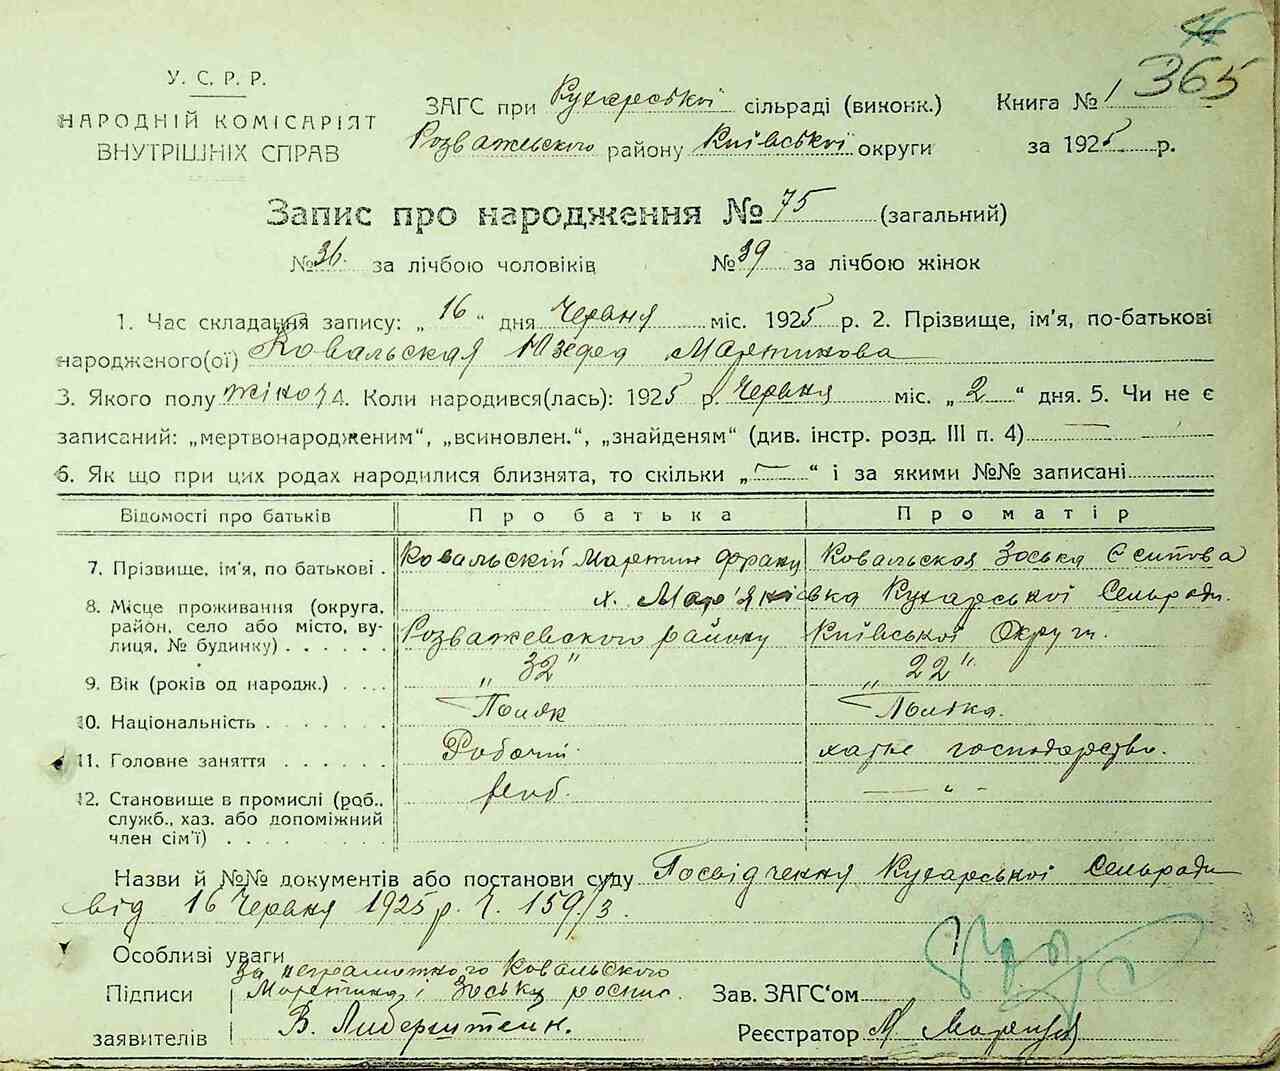 365
У. С. Р. Р.
НАРОДНІЙ КОМІСАРІЯТ
ВНУТРІШНІХ СПРАВ
ЗАГС при Кухарської сільраді (виконк.)
Розважевского району Київської округи
Книга № 1
за 1925 р.
Запис про народження № 75 (загальний)
№ 36. за лічбою чоловіків № 39 за лічбою жінок
1. Час складання запису: „16“ дня Червня міс. 1925 р. 2. Прізвище, ім'я, по-батькові
народженого(ої) Ковальская Юзефа Мартинова
3. Якого полу жіноч 4. Коли народився(лась): 1925 р. Червня міс. „2“ дня. 5. Чи не є
записаний: „мертвонародженим“, „всиновлен.“, „знайденям“ (див. інстр. розд. III п. 4) —
6. Як що при цих родах народилися близнята, то скільки „—“ і за якими №№ записані
Відомості про батьків Про батька Про матір
7. Прізвище, ім'я, по батькові . Ковальскій Мартин Франц Ковальская Зоська Єсипова
8. Місце проживання (округа, район, село або місто, вулиця, № будинку) х. Мар'янівка Кухарської Сельради.
Розважевского району Київської Округи.
9. Вік (років од народж.) „32“ „22“.
10. Національність Поляк Полька.
11. Головне заняття Робочий. хатне господарство.
12. Становище в промислі (роб., служб., хаз. або допоміжний член сім'ї) роб. — „ -
Назви й №№ документів або постанови суду Посвідчення Кухарської Сельради
від 16 Червня 1925 р. Ч. 159/3.
Особливі уваги
Підписи заявителів За неграмотного Ковальского
Мартина і Зоську роспис.
В. Либерштейн.
Зав. ЗАГС'ом
Реєстратор М.